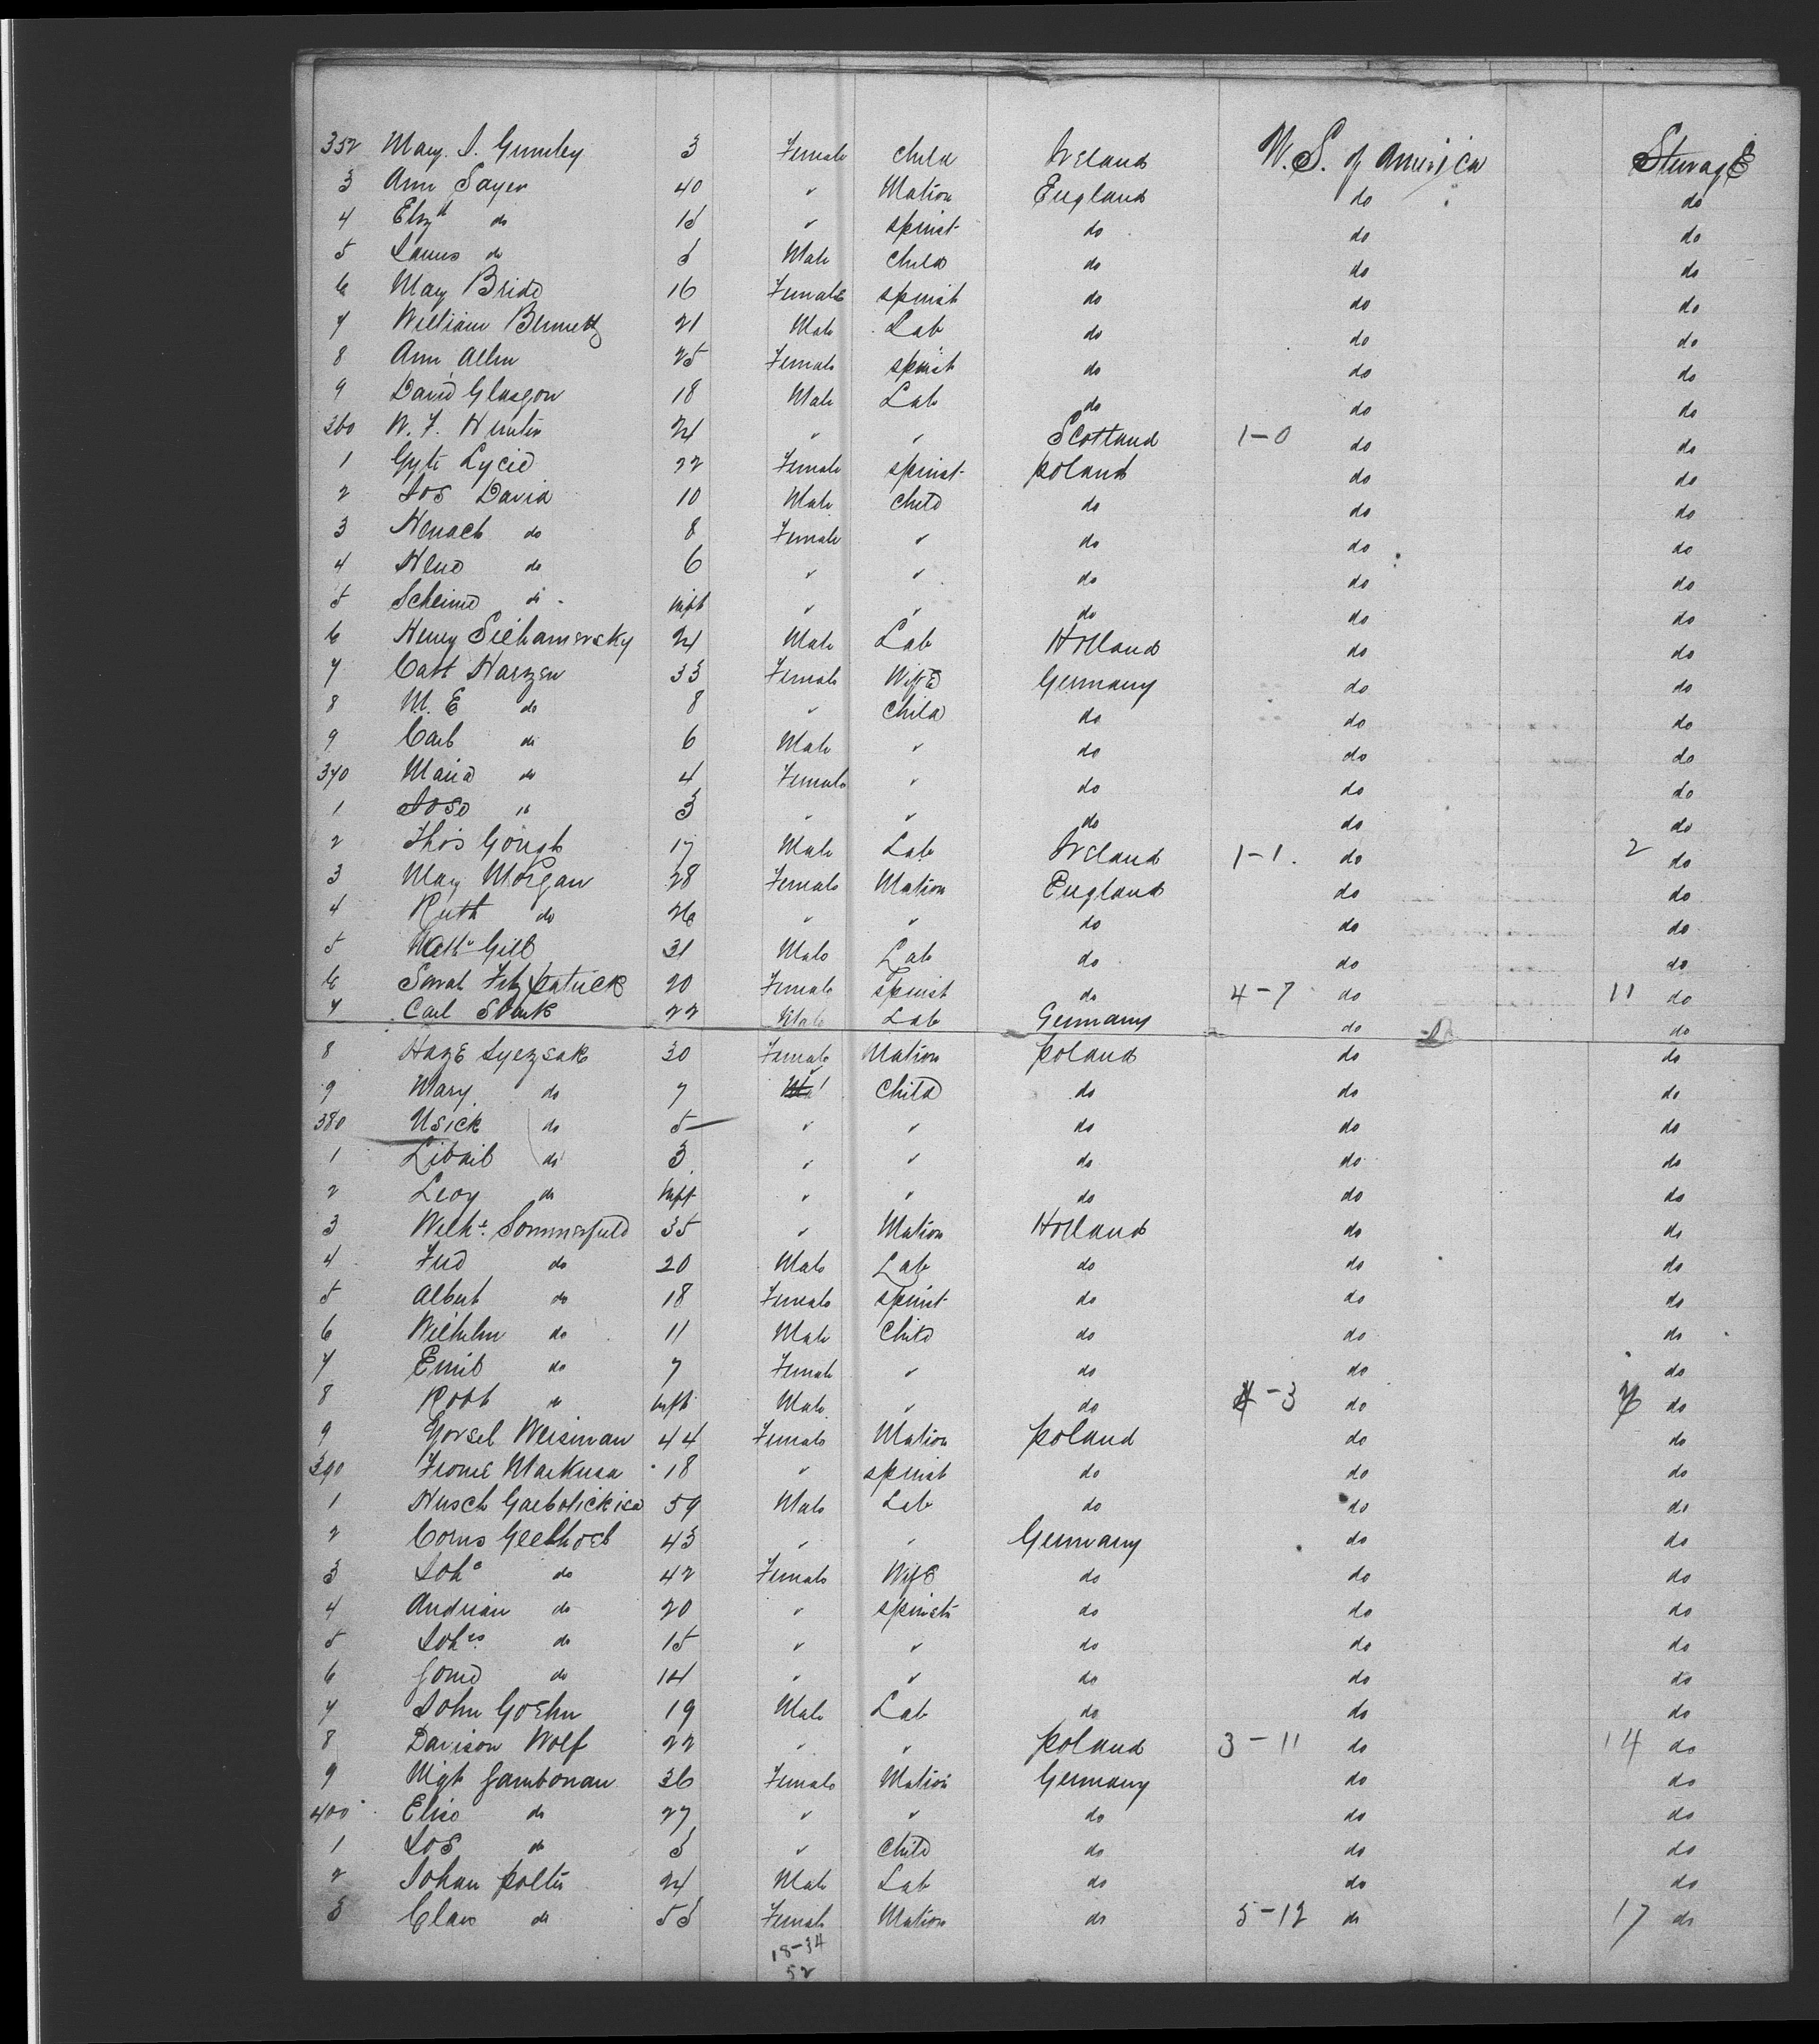 352 Mary. J. Gumley 3 Female Child Ireland U. S. of America SteeragE
3 Ann Sayer 40 " Matron England do do
4 Elizth do 15 " spinst do do do
5 James do 5 Male Child do do do
6 Mary Bride 16 Female spinst do do do
7 William Bennett 21 Male Lab do do do
8 Ann Allen 25 Female spinst do do do
9 David Glasgow 18 Male Lab do do do
360 W. F. Hunter 24 " " Scotland 1-0 do do
1 Gyte Lycid 22 Female spinst poland do do
2 Jos David 10 Male Child do do do
3 Henach do 8 Female " do do do
4 Hend do 6 " " do do do
5 Scheind do inft " " do do do
6 Henry Siehamersky 24 Male Lab Holland do do
7 Cath Harzen 33 Female WifE Germany do do
8 M. E do 8 " Child do do do
9 Carl do 6 Male " do do do
370 Maria do 4 Female " do do do
1 Jose " 3 " " do do do
2 Thos Gough 17 Male Lab Ireland 1-1. do 2 do
3 Mary Morgan 28 Female Matron England do do
4 Ruth do 26 " " do do do
5 Matt Gill 31 Male Lab do do do
6 Sarah Fitzpatrick 20 Female spinst do 4-7 do 11 do
7 Carl Stark 22 Male Lab Germany do do
8 HazE Lyezsak 30 Female Matron poland do do
9 Mary do 7 " Child do do do
380 Usick do 5 " " do do do
1 Libail do 3 " " do do do
2 Leoy do inft " " do do do
3 Wilhe Sommerfield 35 " Matron Holland do do
4 Fred do 20 Male Lab do do do
5 Albert do 18 Female spinst do do do
6 Wilhelm do 11 Male Child do do do
7 Emil do 7 Female " do do do
8 Robt do inft Male " do 4-3 do 7 do
9 Yorsel Weisman 44 Female Matron poland do do
390 Frome Markusa 18 " spinst do do do
1 Husch Garbolickica 59 Male Lab do do do
2 Corns Geelhoel 43 " " Germany do do
3 Joha do 42 Female WifE do do do
4 Andrian do 20 " spinst do do do
5 Johes do 15 " " do do do
6 Jomd do 14 " " do do do
7 John GoEhn 19 Male Lab do do do
8 Davison Wolf 22 " " poland 3-11 do 14 do
9 Mgt Jambonau 36 Female Matron Germany do do
400 Elise do 27 " " do do do
1 Jos do 5 " Child do do do
2 Johan polter 24 Male Lab do do do
3 Clare do 55 Female Matron do 5-12 do 17 do
18-34
52